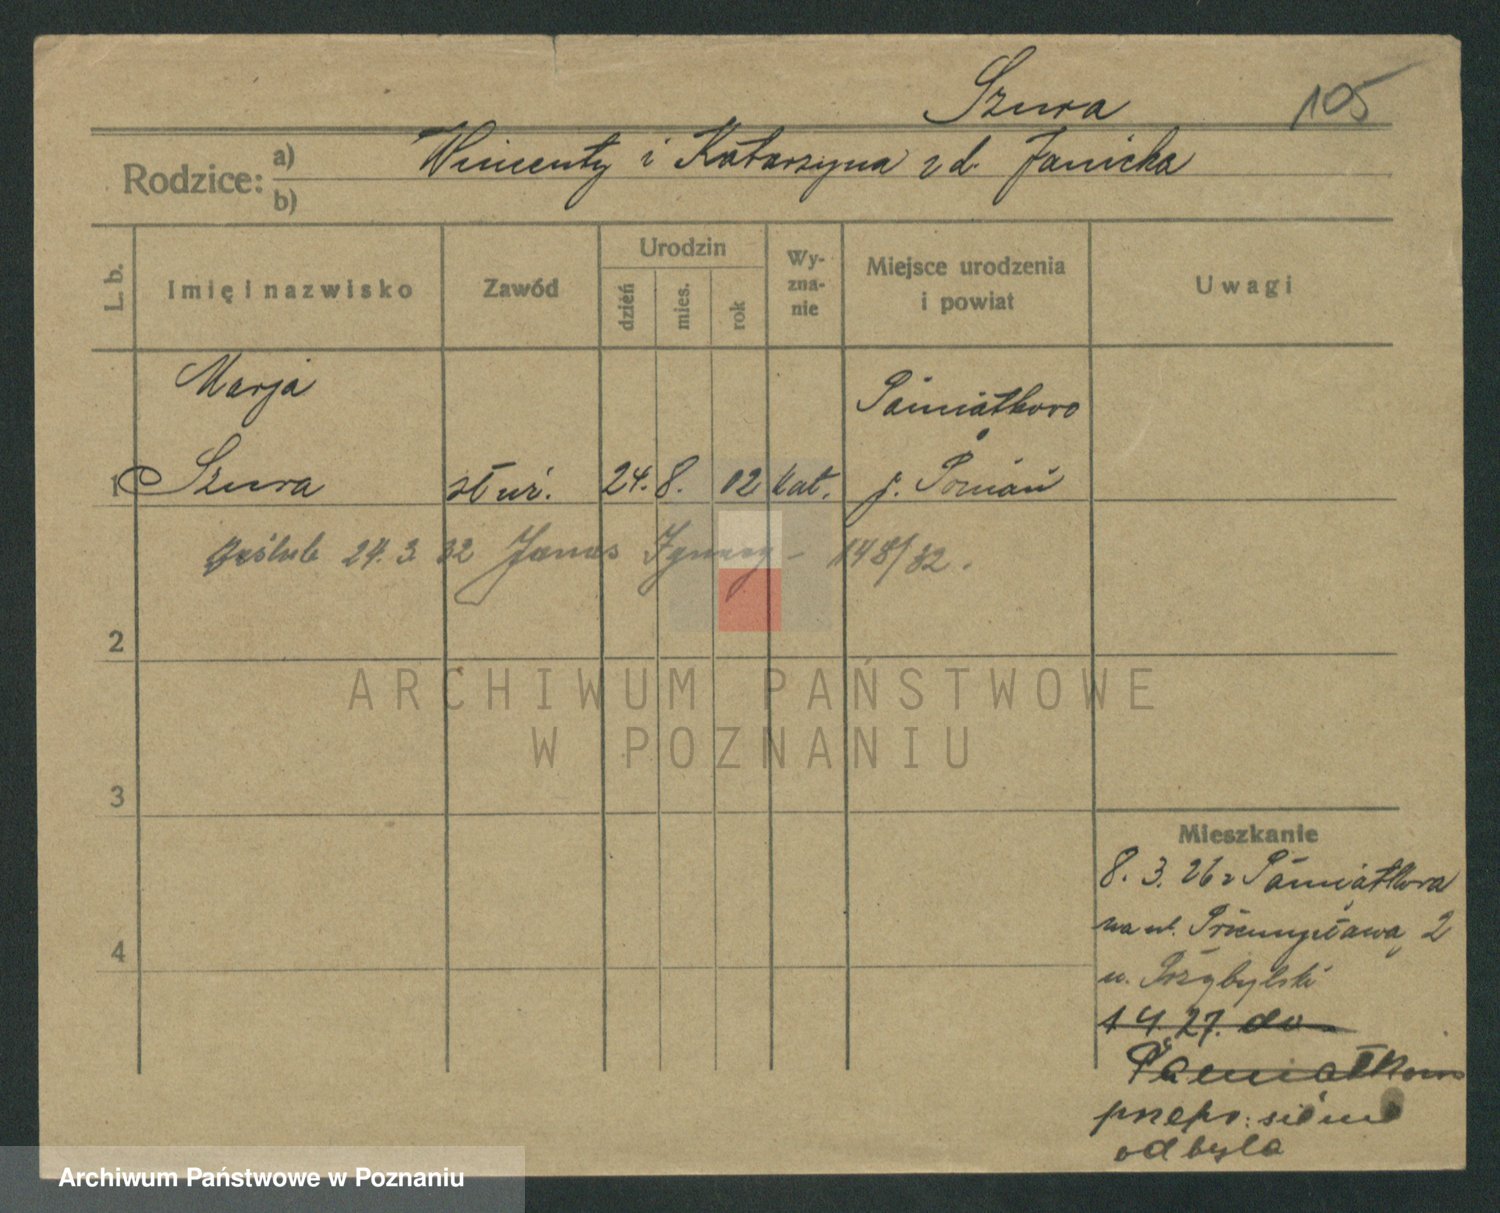 Szura 105
Rodzice: a) Wincenty i Katarzyna z d. Janicka
b)
L. b. Imię i nazwisko Zawód Urodzin dzień mies. rok Wy-zna-nie Miejsce urodzenia i powiat Uwagi
Marja Pamiątkowo
1 Szura służ. 24. 8. 02 kat. p. Poznań
poślub 24. 3. 32 Janas Ignacy – 148/32.
2
ARCHIWUM PAŃSTWOWE
W POZNANIU
3
Mieszkanie
8. 3. 26 z Pamiątkowa
4
na ul. Przemysława 2
u. Przybylski
1 4 27. do
Pamiątkowo
przepr. się nie
odbyła
Archiwum Państwowe w Poznaniu